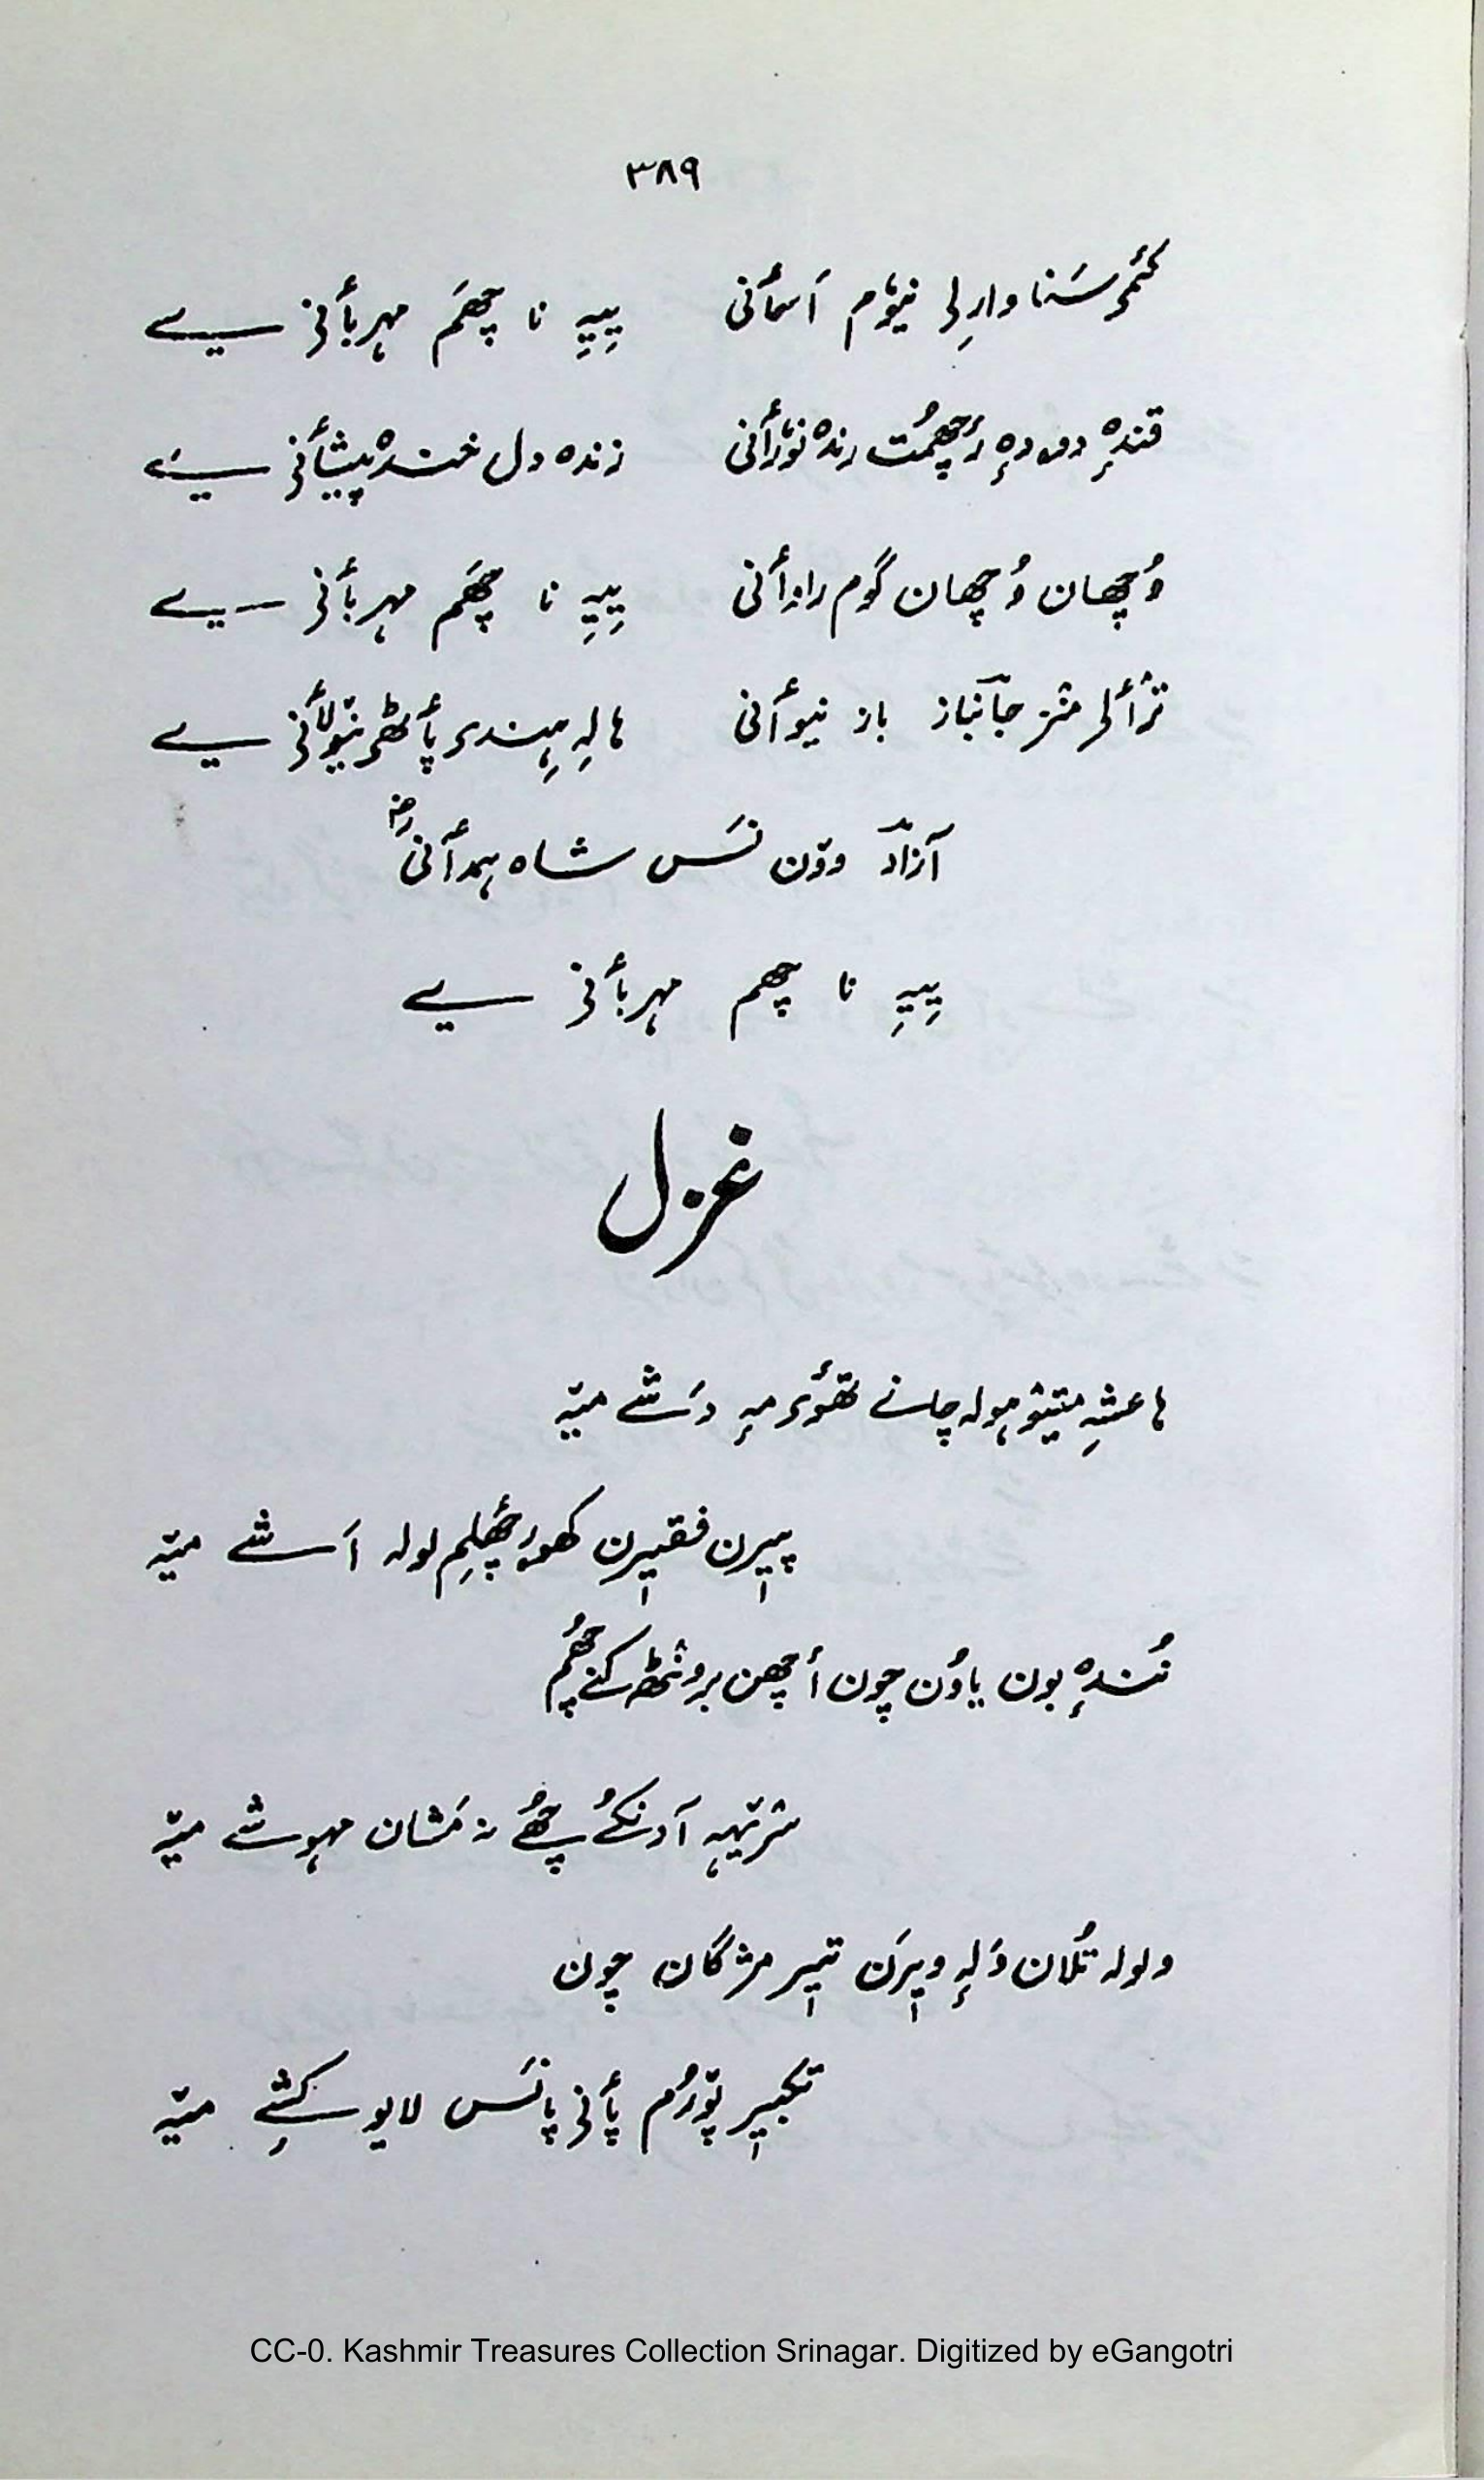 ۳۸۹
کٔمۍ سَنا وارِلی نیوٗم أسمٲنی یِیہِ نا چھَم مہربٲنی سےٚ
قندہٕ دۄدہٕ رٔچھمُت رندہ نوٗرٲنی زندہ دل خندہ پیشٲنی سےٚ
وُچھان وُچھان گوم راز دٲنی یِیہِ نا چھَم مہربٲنی سےٚ
منز جانباز باز نیوٲنی ہالہِ ہِندۍ پٲٹھۍ سےٚ
آزاد ووٚن نَس شاہ ہمدٲنیؓ
یِیہِ نا چھم مہربٲنی سےٚ
غزل
ہا عشقہِ ہولہ چانے تھوٚوۍ مہٕ دَشے میٚتہِ
پیٖرن فقیٖرن کھۄر چھٔلِم لولہ اَشے میٚتہِ
نُندہٕ بون یاوُن چون أچھن برونٹھہ کنے چھُم
آدنکُے چھُے نہ مَشان مہوشے میٚتہِ
ولولہ تُلان دَلہٕ ویٖرَن تیٖر مژگان چون
تکبیٖر پوٚرُم پٲنۍ پانَس لایو کَشےٚ میٚتہِ
CC-0. Kashmir Treasures Collection Srinagar. Digitized by eGangotri